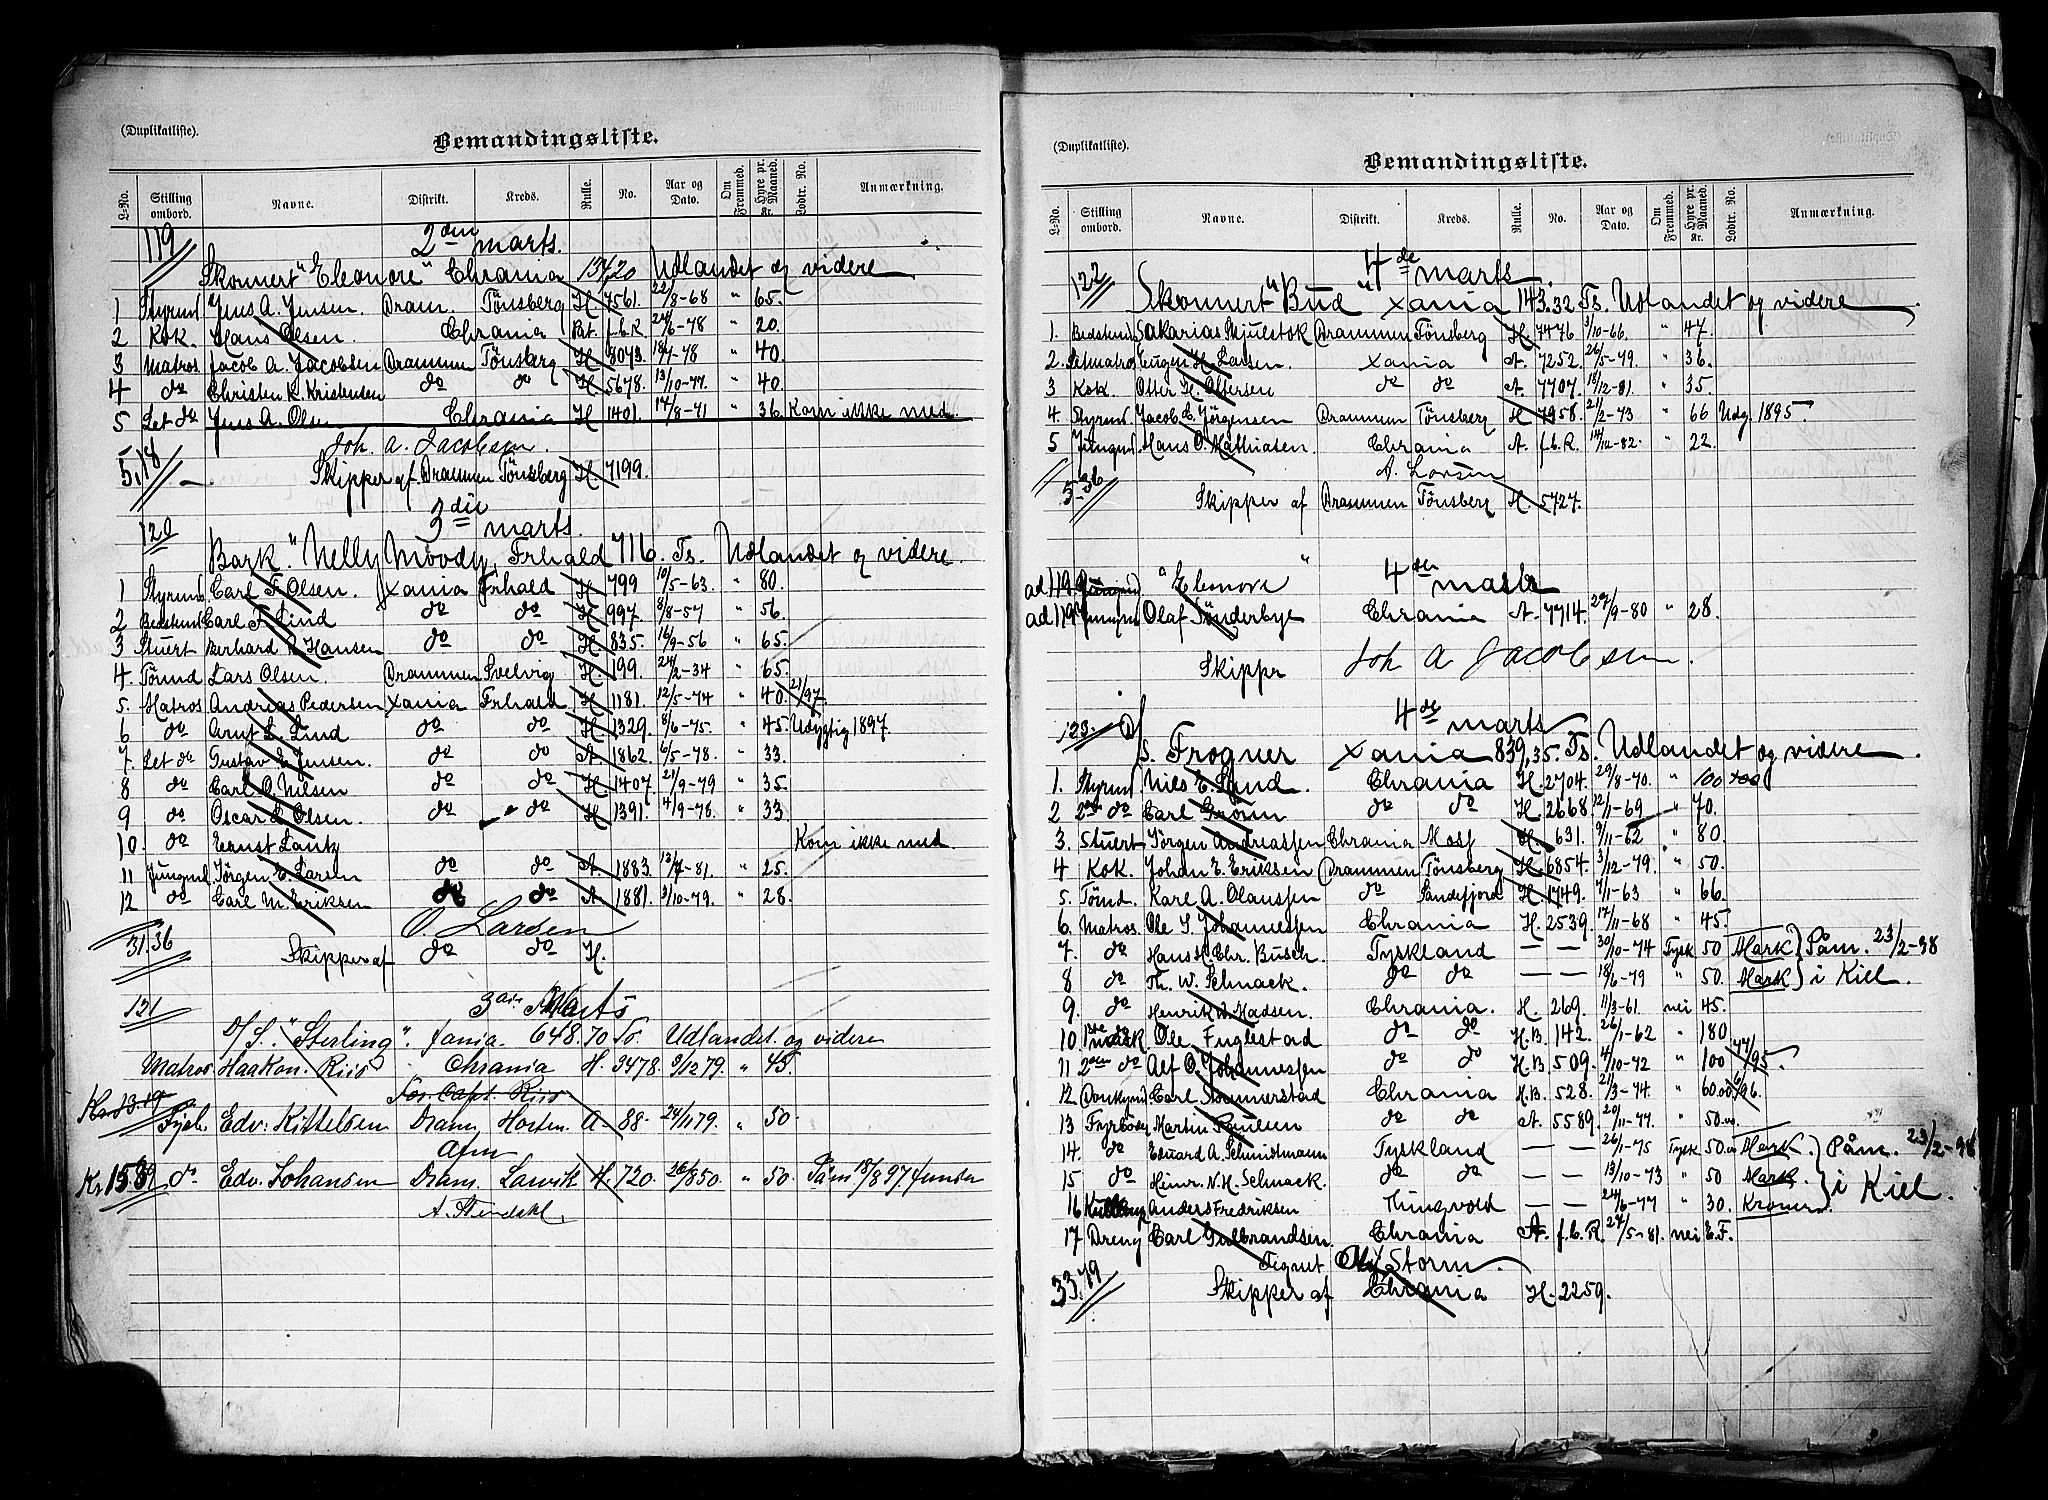 (Duplikatliste).
Bemandingsliste.
L-No. Stilling ombord. Navne. Distrikt. Kreds. Rulle. No. Aar og Dato. Om Fremmed. Hyre pr. Maaned. Kr. Lodtr. No. Anmærkning.
119 2den marts.
Skonnert "Eleonore" Chrania 134,20 Udlandet og videre
1 Styrmd Jens A. Jensen. Dram. Tönsberg H. 7561. 22/8-68 " 65.
2 Kok. Hans Olsen. Chrania Pat. f.b.R 24/6-78 " 20.
3 Matros Jacob A. Jacobsen Drammen Tönsberg H. 8073. 18/7-78 " 40.
4 do Christen K. Kristensen do do H. 5678. 13/10-77. " 40.
5 Let do Jens A. Olsen Chrania H. 1401. 17/8-71 " 36. Kom ikke med.
Joh. A. Jacobsen.
5,18 Skipper af Drammen Tönsberg H. 7199.
3die marts.
120
Bark. "Nelly Moody, Frhald 716. Ts. Udlandet og videre.
1 Styrmd Carl F. Olsen. Xania Frhald H. 799 10/5-63. " 80.
2 Bedstmd Carl F. Lind do do H. 997. 3/8-57 " 56.
3 Stuert Berhard R. Hansen do do H. 835. 16/9-56 " 65.
4. Tömd Lars Olsen. Drammen Svelvig H. 199. 24/2-34 " 65.
5. Matros Andreas Pedersen Xania Frhald H. 1181. 12/5-74 " 40. 21/97.
6 do Arnt L. Lind do do H. 1329. 8/6-75. " 45. Udygtig 1897.
7. Let do Gustav E. Jensen. do do A 1862. 6/5-78. " 33.
8 do Carl O. Nilsen do do H. 1407. 21/9-79 " 35.
9 do Oscar L. Olsen. do do H. 1391. 4/9-78. " 33
10. do Ernst Lantz Kom ikke med.
11 Jungmd. Jörgen E. Larsen do do A 1883. 13/7-81. " 25.
12 do Carl M. Eriksen do do A 1881. 3/10-79. " 28.
O. Larsen
31.36 Skipper af do do H.
121 3die Marts
D/S. "Sterling" Xania. 648.70 Ts. Udlandet og videre
Matros Haakon Riis Chrania H. 3478. 3/12 79. " 45.
For Capt. Riis
Kr 13.19
Fyrb. Edv: Kittelsen Dram Horten. A 88. 24/11 79. " 50.
Afm
Kr 15 89 do Edv. Johansen Dram. Larvik H. 720. 26/8 50. " 50. Påm 18/8 97
A. Stendahl.
(Duplikatliste).
Bemandingsliste.
L-No. Stilling ombord. Navne. Distrikt. Kreds. Rulle. No. Aar og Dato. Om Fremmed. Hyre pr. Maaned. Kr. Lodtr. No. Anmærkning.
122 4de marts.
Skonnert "Bud" Xania 143.32. Ts. Udlandet og videre
1. Bedstemd Sakarias Drammen Tönsberg H. 7476 3/10-66. " 47.
2. Letmatros Eugen H. Larsen. Xania A. 7252. 26/5-79. " 36.
3 Kok. Otter H. Ottersen do do A. 7707. 18/12-81. " 35.
4. Styrmd. Jacob C. Jörgensen Drammen Tönsberg H. 7958. 21/2-73 " 66 Udg. 1895.
5 Jungmd Hans O. Mathiasen. Chrania A. f.b.R. 14/12-82. " 22.
A. Larsen
5.36 Skipper af Drammen Tönsberg H. 5727.
ad 119 "Eleonora" 4de marts
ad 119 Jungmd Olaf Sönderbye Chrania A. 7714. 29/9-80 " 28.
Skipper Joh A Jacobsen.
4de marts
123. D/S. Frogner Xania 839,35. Ts. Udlandet og videre
1. Styrmd Nils E. Lund. Chrania H. 2704. 29/8-70. " 100
2 2den do Carl Gronn do do H. 2668. 12/11-69 " 70.
3. Stuert Jörgen Andreassen Chrania Moss H. 631. 9/11-62 " 80.
4 Kok. Johan E. Eriksen Drammen Tönsberg H. 6854. 3/12-79. " 50.
5. Tömd. Karl A. Olaussen do Sandefjord H. 1749. 7/11-63 " 66.
6. Matros Ole S. Johannessen Chrania H. 2539. 17/11-68 " 45.
7. do Hans H. Chr. Busch. Tyskland — — 30/10-74 Tysk 50 Mark } Påm. 23/2-98
8 do Th. W. Schnack. do do — — 18/6-79 " 50. Mark } i Kiel.
9. do Henrik W. Madsen. Chrania. H. 269. 11/3-61. nei 45.
10 1ste Mask Ole Fuglestad do do H.B. 142. 26/1-62 " 180
11 2den do Alf O. Johannessen do do H.B. 509. 4/10-72 " 100 77/95
12 Donkymd Carl Sommerstad Chrania H.B. 528. 21/3-74. " 60.00 6/96.
13 Fyrböder Martin Poulsen do do A. 5589. 20/11-77. " 50.00
14. do Eduard A. Schmidtmann Tyskland — — 26/1-75 Tysk 50.00 Mark. } Påm. 23/2-98
15 do Heinr. N. H. Schnack. do do — — 13/10-73 " 50 Mark. } i Kiel.
16 Anders Fredriksen Thingvold — — 24/6-77 " 30. Kroner.
17 Dreng Carl Gulbrandsen Chrania A. f.b.R. 27/5-81. nei E.F.
Tegnet Storm.
33.79 Skipper af Chrania H. 2259.